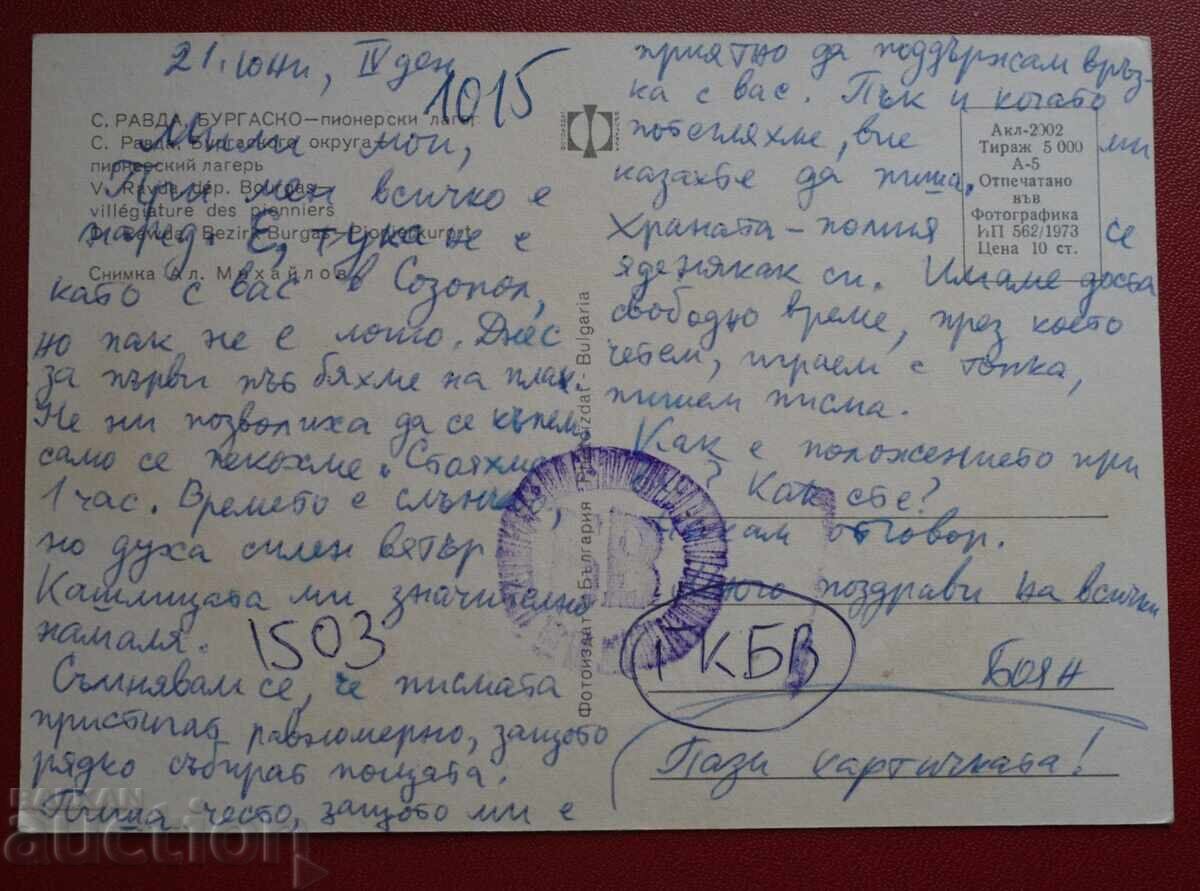 21. юни, IV ден
1015
С. РАВДА, БУРГАСКО—пионерски лагер
С. Равда, Бургаского округа—
пионерский лагерь
V. Ravda dép. Bourgas—
villégiature des pionniers
D. Rawda, Bezirk Burgas—Pionierkurort
Снимка Ал. Михайлов
Мили мои,
При мен всичко е
наред. Е, тука не е
като с вас в Созопол,
но пак не е лошо. Днес
за първи път бяхме на плаж.
Не ни позволиха да се къпем
само се пекохме. Стояхме
1 час. Времето е слънчево,
но духа силен вятър
Кашлицата ми значително
намаля.
1503
Съмнявам се, че писмата
пристигат равномерно, защото
рядко събират пощата.
Пиша често, защото ми е
приятно да поддържам връз-
ка с вас. Пък и когато
потегляхме, вие ми
казахте да пиша.
Храната – се
яде някак си. Имаме доста
свободно време, през което
четем, играем с топка,
пишем писма.
Как е положението при
? Как сте?
отговор.
Много поздрави на всички
Боян
Пази картичката!
КБВ
Акл-2002
Тираж 5 000
А-5
Отпечатано
във
Фотографика
ИП 562/1973
Цена 10 ст.
Фотоиздат – България · Photoizdat – Bulgaria
БАЛКАН
auction